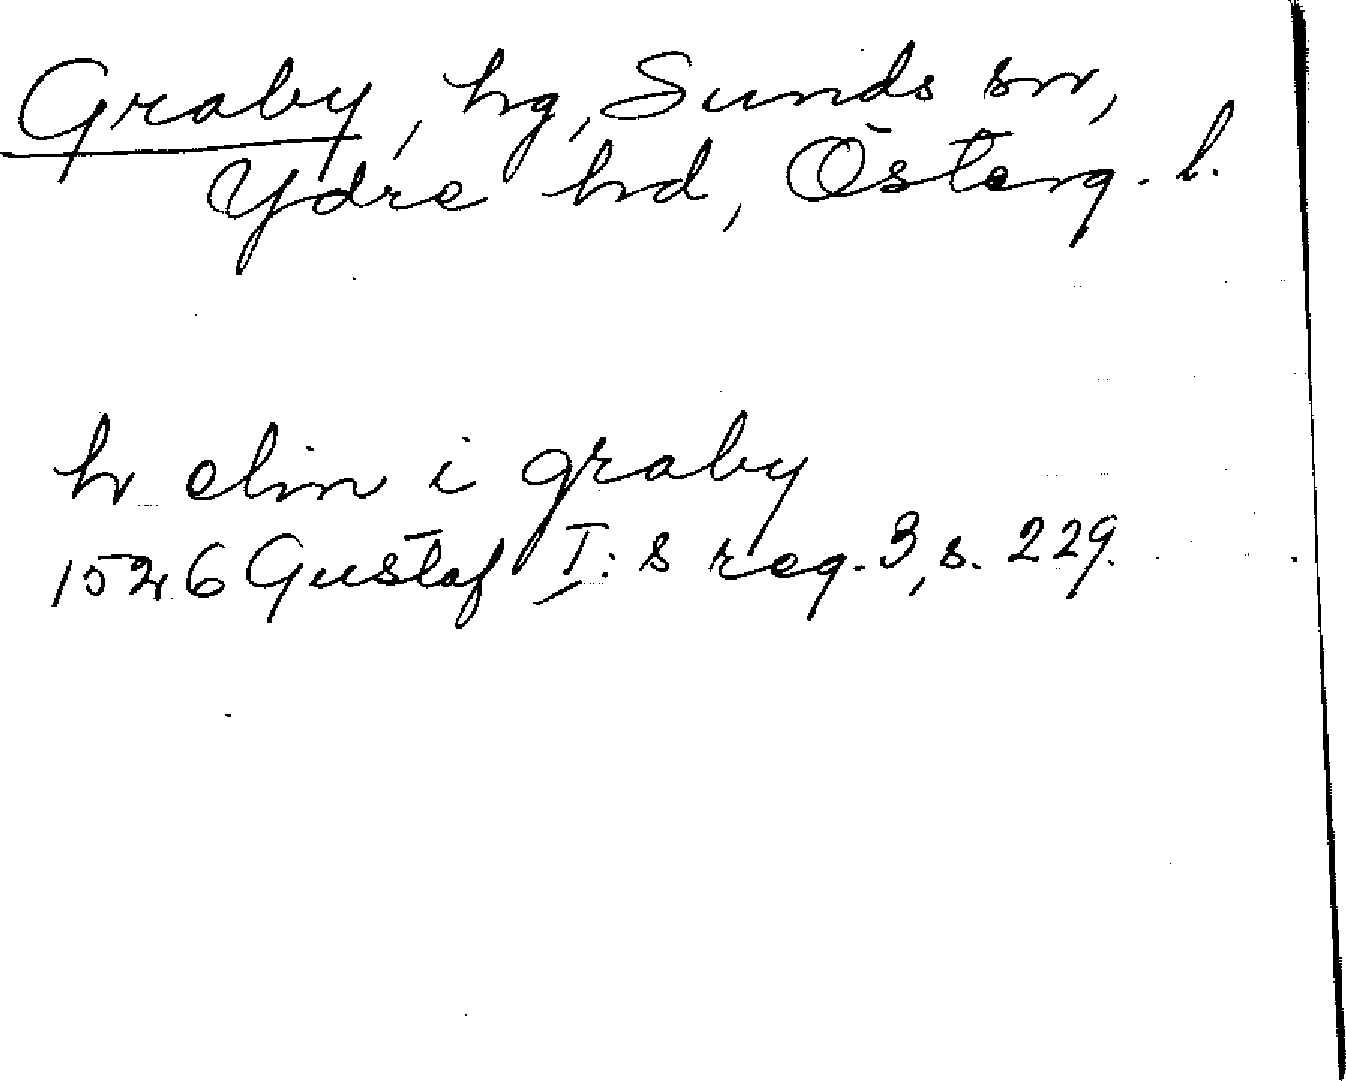 Graby, hg, Sunds sn,
Ydre hd, Österg. l.
h elin i graby
1526 Gustaf I:s reg. 3, s. 229.